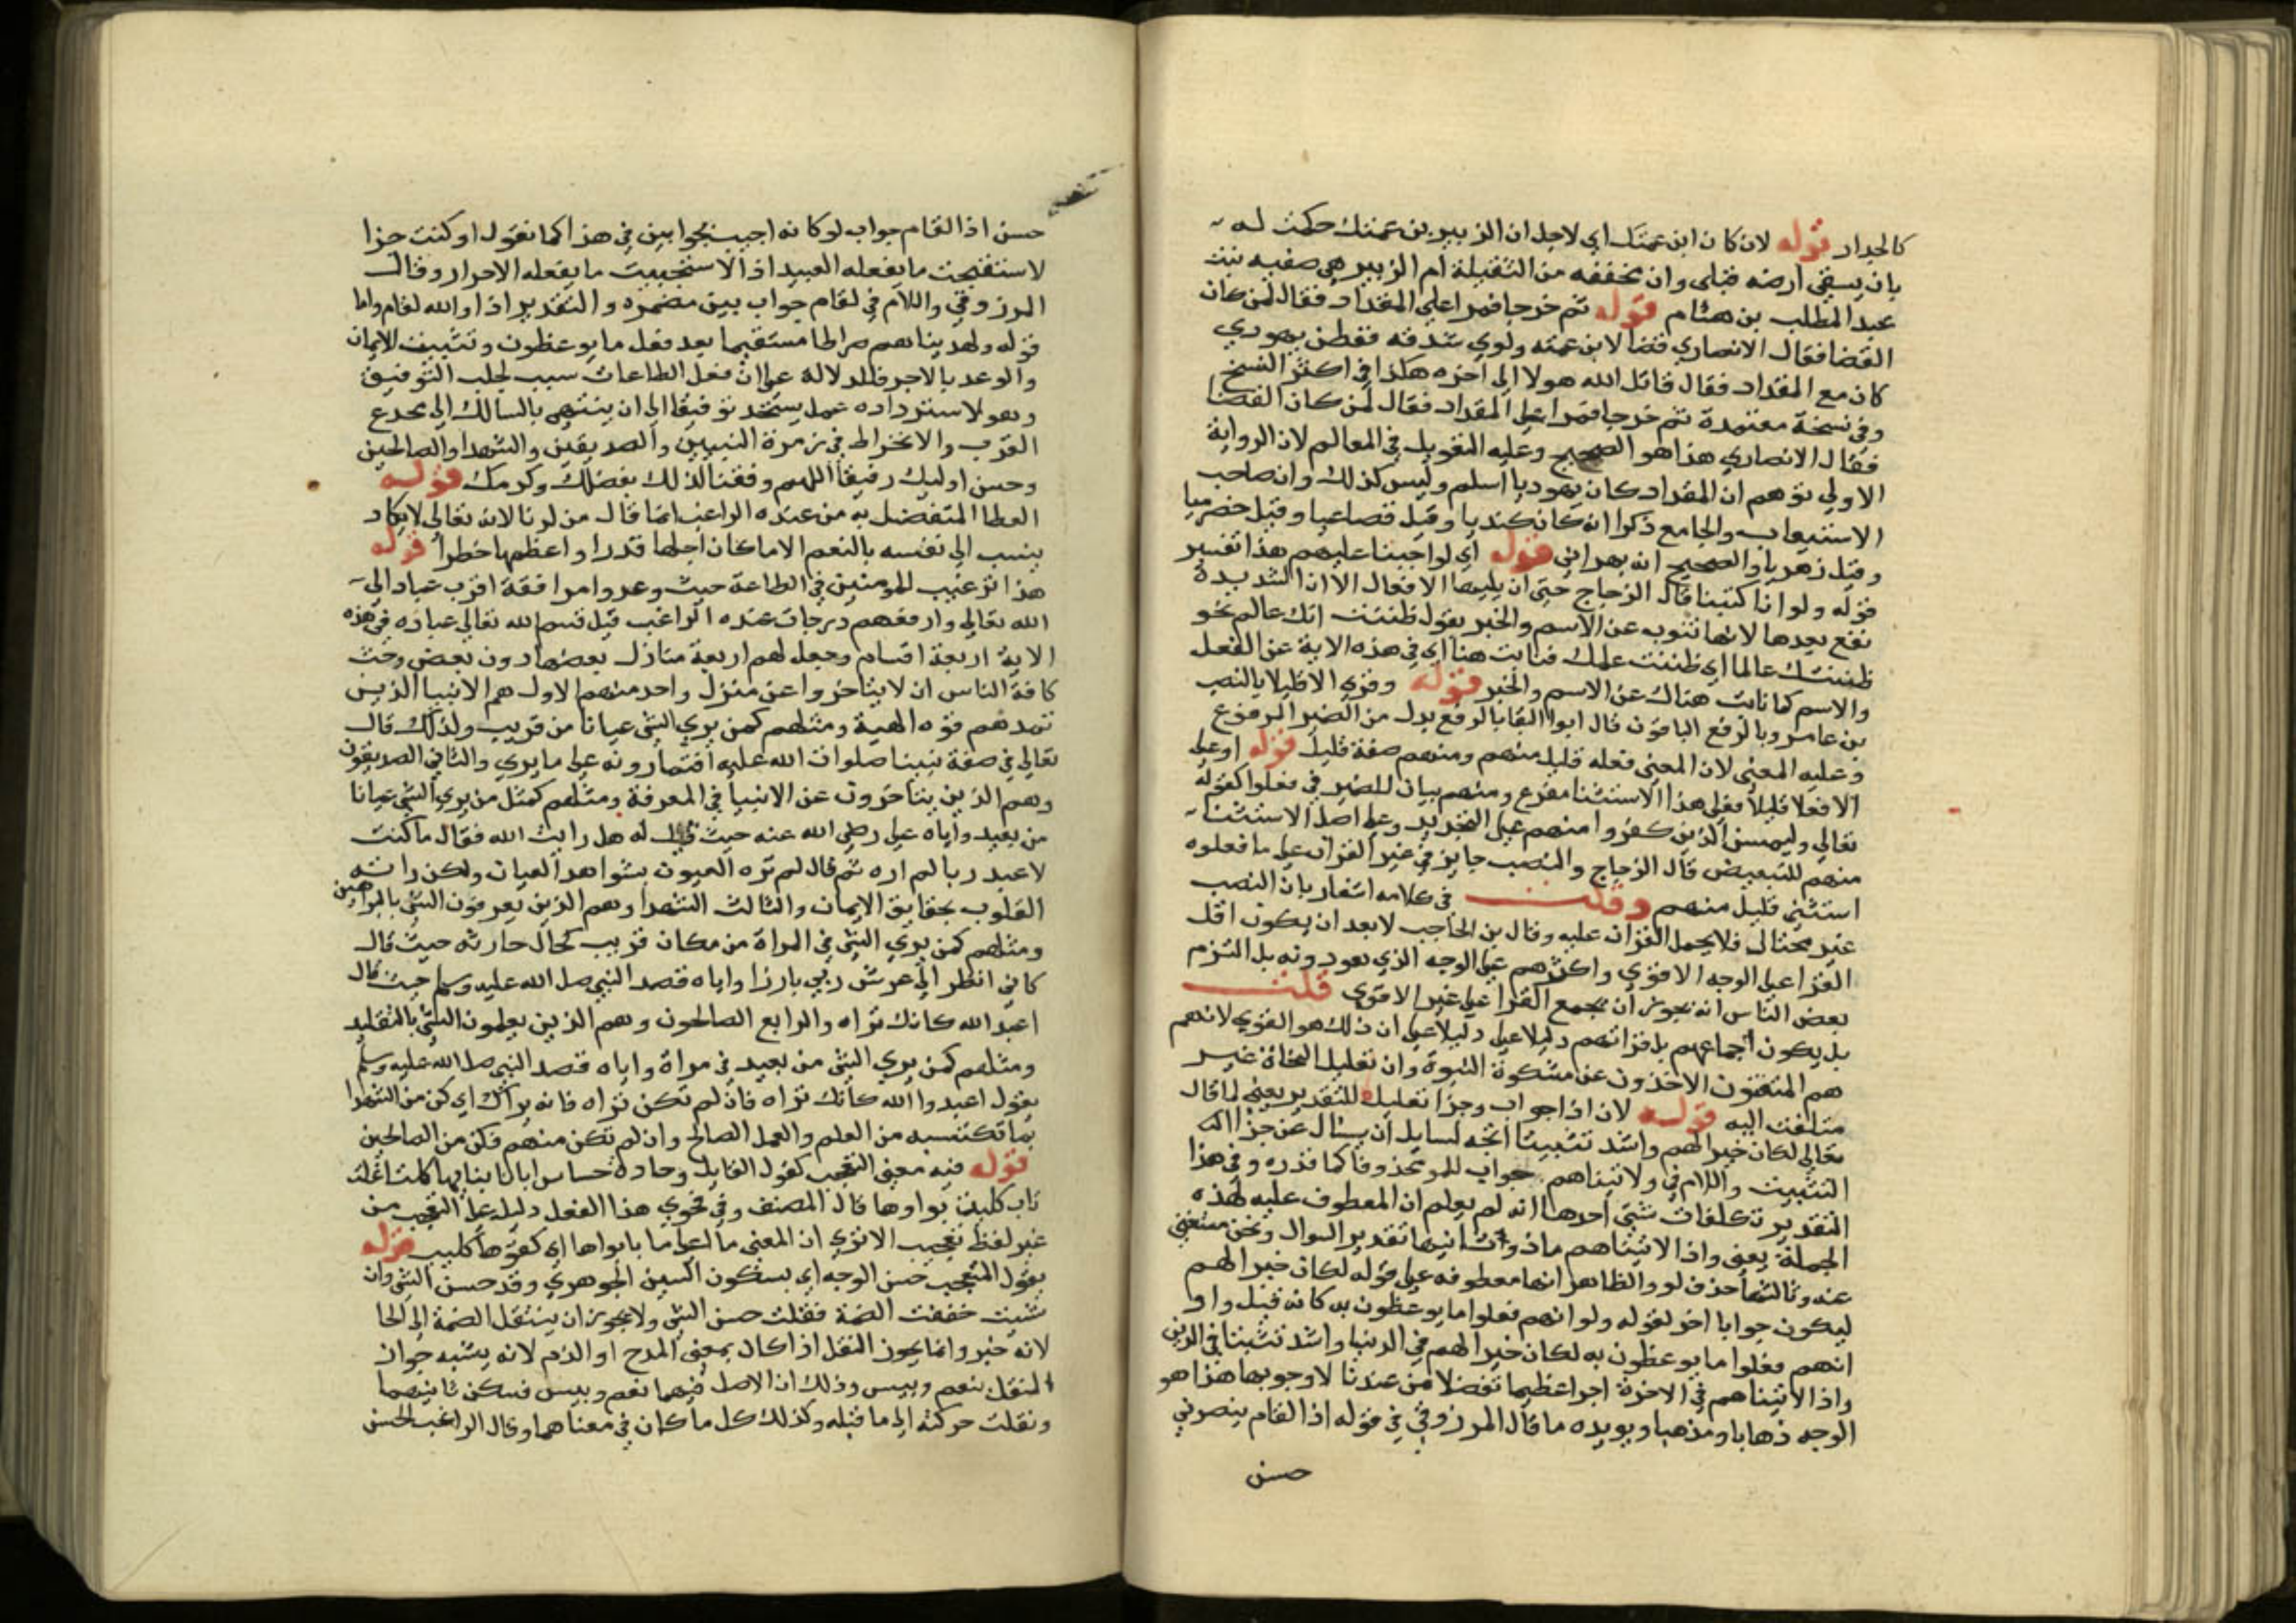 كالجدار قوله لان كان ابن عمتك اي لاجل ان الزبير بن عمتك حكمت له
بان يسقي ارضه قبلي وان مخففه من الثقيلة ام الزبير هي صفيه بنت
عبد المطلب بن هشام قوله ثم خرجا فمرا علي المقداد فقال لمن كان
القضا فقال الانصاري قضا لابن عمته ولوي شدقه ففطن يهودي
كان مع المقداد فقال قاتل الله هولا الي اخره هكذا في اكثر النسخ
وفي نسخة معتمدة ثم خرجا فمرا علي المقداد فقال لمن كان القضا
فقال الانصاري هذا هو الصحيح وعليه التعويل في المعالم لان الرواية
الاولي توهم ان المقداد كان يهوديا اسلم وليس كذلك وان صاحب
الاستيعاب والجامع ذكرا انه كان كنديا وقيل قضاعيا وقيل حضرميا
وقيل زهريا والصحيح انه بهراني قوله اي لو اجبنا عليهم هذا تفسير
قوله ولو انا كتبنا قال الزجاج حتي ان يليها الافعال الا ان الشديدة
تقع بعدها لانها تنوب عن الاسم والخبر يقول ظننت انك عالم نحو
ظننتك عالما اي ظننت علمك فنابت هنا اي في هذه الاية عن الفعل
والاسم كما نابت هناك عن الاسم والخبر قوله وقري الا قليلا بالنصب
بن عامر وبالرفع الباقون قال ابوا البقا بالرفع بدل من الضمير المرفوع
وعليه المعني لان المعني فعله قليل منهم ومنهم صفة قليل قوله او علي
الا فعلا قليلا فعلي هذا الاستثنا مفرع ومنهم بيان للضمير في فعلوا كقوله
تعالي وليمسن الذين كفروا منهم علي التجريد وعلي اصل الاستثنا
منهم للتبعيض قال الزجاج والنصب جايز في غير القران علي ما فعلوه
استثني قليل منهم وقلت في كلامه اشعار بان النصب
غير مختار فلا يحمل القران عليه وقال بن الحاجب لا بعد ان يكون اقل
القرا علي الوجه الاقوي واكثرهم علي الوجه الذي هو دونه بل التزم
بعض الناس انه يجوز ان يجمع القرا علي غير الاقوي قلت
بل يكون اجماعهم بل قراتهم دليلا علي دليلا علي ان ذلك هو القوي لانهم
هم المتقنون الاخذون عن مشكوة النبوة وان تعليل النحاة غير
متلفت اليه قوله لان اذا جواب وجزا تعليل للتقدير يعني لما قال
تعالي لكان خيرا لهم واشد تثبيتا اتجه لسايل ان يسال عن جزا الله
التثبيت واللام في ولاتيناهم جواب للو محذوفا كما قدره وفي هذا
التقدير تكلفات شتي احدها انه لم يعلم ان المعطوف عليه لهذه
الجملة يعني واذا لاتيناهم ماذا وثانيها تقدير السوال ونحن مستغني
عنه وثالثها حذف لو والظاهر انها معطوفه علي قوله لكان خيرا لهم
ليكون جوابا اخر لقوله ولو انهم فعلوا ما يوعظون به كانه قيل ولو
انهم فعلوا ما يوعظون به لكان خيرا لهم في الدنيا واشد تثبيتا في الدين
واذا لاتيناهم في الاخرة اجرا عظيما تفضلا من عندنا لا وجوبها هذا هو
الوجه ذهابا ومذهبا ويويده ما قال المرزوقي في قوله اذا لقام بنصرتي
حسن
حسن اذا لقام جواب لو كانه اجيب بجوابين في هذا كما تقول لو كنت حرا
لاستقبحت ما يفعله العبيد اذا لاستحييت ما يفعله الاحرار وقال
المرزوقي واللام في لقام جواب يمين مضمره والتقدير اذا والله لقام واما
قوله ولهديناهم صراطا مستقيما بعد فعل ما يوعظون وتثبيت الايمان
والوعد بالاجر فللدلالة علي ان فعل الطاعات سبب لجلب التوفيق
وهو لاستزداده عمل يستجد توفيقا الي ان ينتهي بالسالك الي مخدع
القرب والانخراط في زمرة النبيين والصديقين والشهدا والصالحين
وحسن اوليك رفيقا اللهم وفقنا لذلك بفضلك وكرمك قوله
العطا المتفضل به من عنده الراغب انما قال من لدنا لانه تعالي لا يكاد
ينسب الي نفسه بالنعم الا ما كان اجلها قدرا واعظمها خطرا قوله
هذا ترغيب للمومنين في الطاعة حيث وعدوا مرافقة اقرب عباد الي
الله تعالي وارفعهم درجات عنده الراغب قيل قسم الله تعالي عباده في هذه
الاية اربعة اقسام وجعل لهم اربعة منازل بعضها دون بعض وحث
كافة الناس ان لا يتاخروا عن منزل واحد منهم الاول هم الانبيا الذين
تمدهم قوه الهية ومثلهم كمن يري الشي عيانا من قريب ولذلك قال
تعالي في صفة نبينا صلوات الله عليه افتمارونه علي ما يري والثاني الصديقون
وهم الذين يتاخرون عن الانبيا في المعرفة ومثلهم كمثل من يري الشي عيانا
من بعيد واياه عني علي رضي الله عنه حيث قيل له هل رايت الله فقال ما كنت
لاعبد ربا لم اره ثم قال لم تره العيون بشواهد العيان ولكن راته
القلوب بحقايق الايمان والثالث الشهدا وهم الذين يعرفون الشي بالبراهين
ومثلهم كمن يري الشي في المراة من مكان قريب كحال حارثه حيث قال
كاني انظر الي عرش ربي بارزا واياه قصد النبي صلي الله عليه وسلم حيث قال
اعبد الله كانك تراه والرابع الصالحون وهم الذين يعلمون الشي بالتقليد
ومثلهم كمن يري الشي من بعيد في مراة واياه قصد النبي صلي الله عليه وسلم
بقول اعبدوا الله كانك تراه فان لم تكن تراه فانه يراك اي كن من الشهدا
بما تكتسبه من العلم والعمل الصالح وان لم تكن منهم فكن من الصالحين
قوله فيه معني التعجب كقول القايل وجارة جساس ابانا بنابها كليبا غلت
ناب كليب بواوها قال المصنف وفي فحوي هذا الفعل دليل علي التعجب من
غير لفظ تعجب الا تري ان المعني ما اعلي ما بابواها اي كفوها كليب قوله
يقول المتعجب حسن الوجه اي بسكون السين الجوهري وقد حسن الشي وان
شيت خففت الضمة فقلت حسن الشي ولا يجوز ان ينتقل الضمة الي الحا
لانه خبر وانما يجوز النقل اذا كان بمعني المدح او الذم لانه يشبه جواز
النقل بنعم وبيس وذلك ان الاصل فيهما نعم وبيس فسكن ثانيهما
ونقلت حركته الي ما قبله وكذلك كل ما كان في معناهما وقال الراغب الحسن